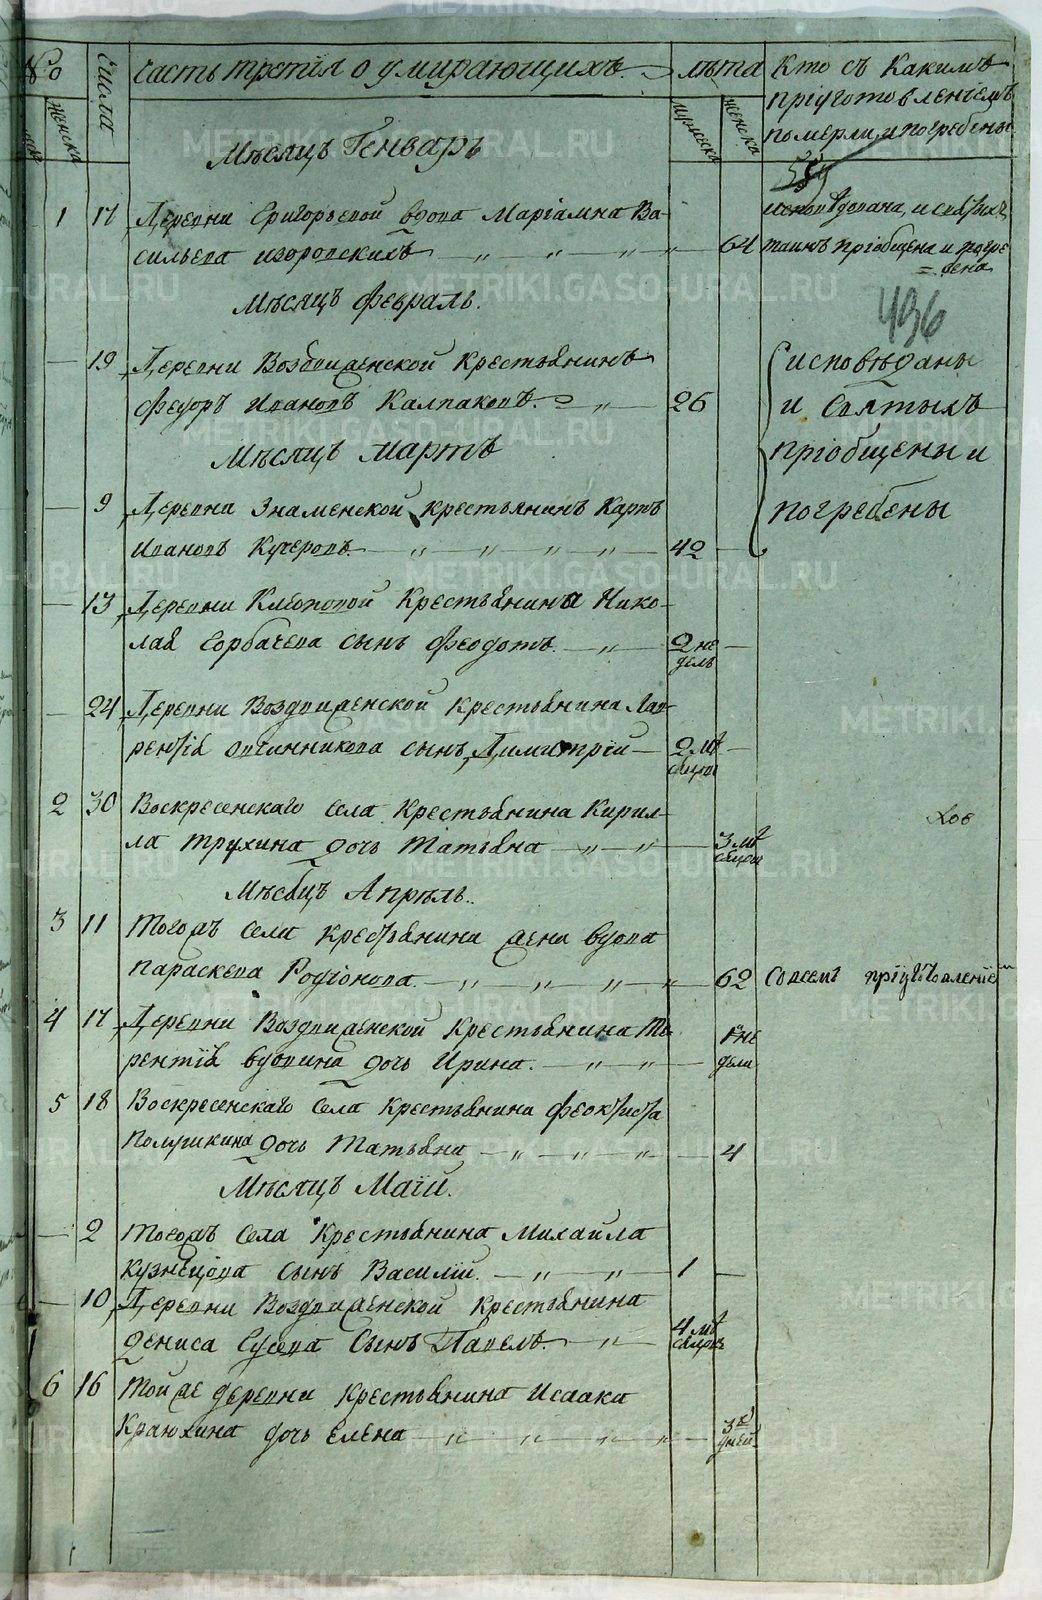 № Числа Часть третія о умирающихъ. Лѣта Кто съ Какимъ
Женска мужеска женска пріуготовленіемъ
померли и погребены
Мѣсяцъ Генварь
1 17 Деревни Григорьевой вдова Маріамна Ва-
исповѣдана, и святыхъ
сильева 64 таинъ пріобщена и погре
бена
Мѣсяцъ Февраль.
496
19 Деревни Воздвиженской Крестьянинъ
исповѣданы
Феодоръ Ивановъ Калпаковъ. 26 и Святыхъ
Мѣсяцъ Мартъ
пріобщены и
9 Деревни Знаменской крестьянинъ Карпъ погребены
Ивановъ Кучеровъ 42
13 Деревни Крестьянина Нико-
лая Горбачева сынъ Феодотъ. 2 не
дель
24 Деревни Воздвиженской Крестьянина Лав-
рентія Овчинникова сынъ Димитрій 2 мѣ
сяцов
2 30 Воскресенскаго села Крестьянина Кирил-
ла Трухина дочь Татьяна 3 мѣ
сяцов
Мѣсяцъ Апрѣль.
3 11 Тогожъ Села крестьянина жена вдова
Параскева Родіонова. 62 Совсемъ пріуготовленіем
4 17 Деревни Воздвиженской Крестьянина Те-
рентія Вдовина дочь Ирина. не
дели
5 18 Воскресенскаго Села Крестьянина Феоктиста
дочь Татьяна 4
Мѣсяцъ Маій.
2 Тогожъ Села Крестьянина Михайла
Кузнецова Сынъ Василій. 1
10 Деревни Воздвиженской Крестьянина
Дениса Сынъ Павелъ. 4 мѣ
сяцовъ
6 16 Той же деревни Крестьянина Исаака
Краюхина дочь Елена 3
дней
METRIKI.GASO-URAL.RU